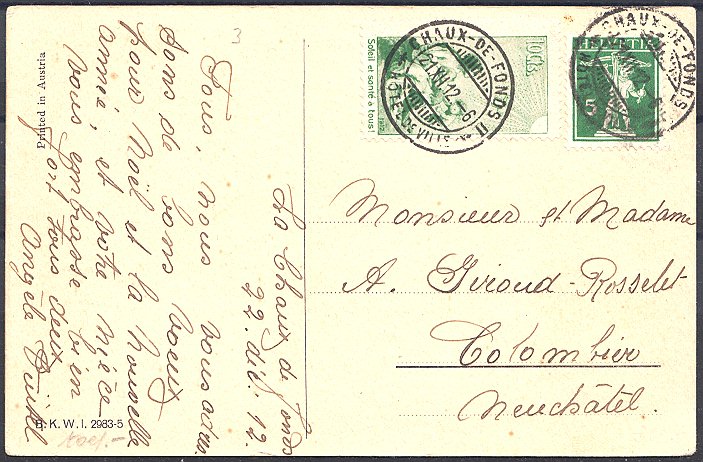 La Chaux de fonds
22. déc. 12.
Tous, nous vous adres-
sons de bons voeux
pour Noël et la Nouvelle
année, et votre nièce
vous embrasse bien
fort tous deux
Angèle
3
Printed in Austria
B. K. W. I. 2983-5
Soleil et santé à tous!
1912
CHAUX-DE-FONDS II
HÔTEL DE VILLE
21.XII.12
HELVETIA
5
CHAUX-DE-FONDS
Monsieur et Madame
A. Giroud-Rosselet
Colombier
Neuchâtel